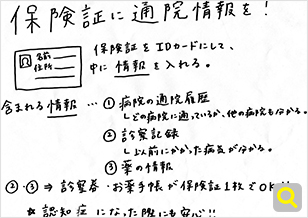 保険証に通院情報を!
名前
住所
保険証をIDカードにして、
中に情報を入れる。
含まれる情報 … ① 病院の通院履歴
↳どの病院に通っているか、他の病院も分かる。
② 診察記録
↳以前にかかった病気が分かる。
③ 薬の情報
②・③ ⇒ 診察券・お薬手帳が保険証1枚でOK!!
☆ 認知症になった際にも安心!!